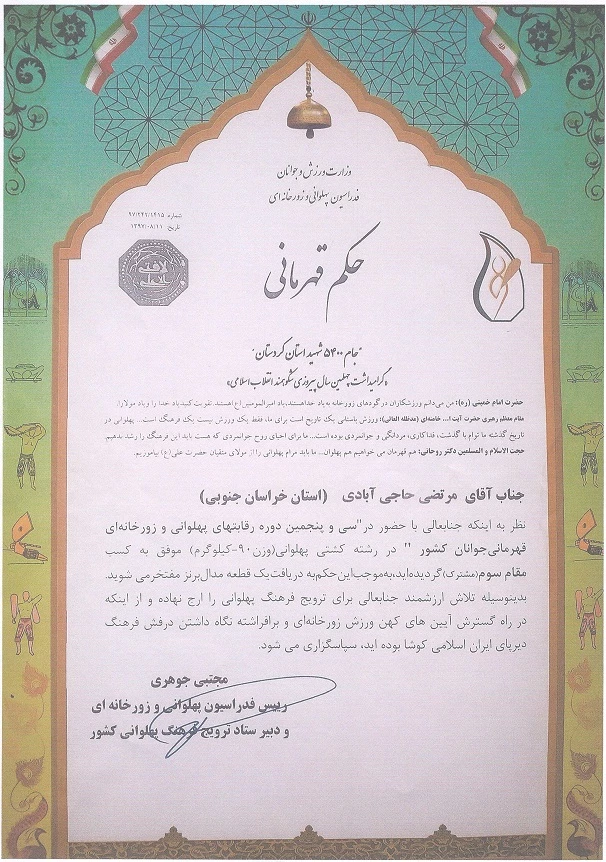 وزارت ورزش و جوانان
فدراسیون پهلوانی و زورخانه ای
شماره ۹۷/۲۴۲/۱۴۱۵
تاریخ ۱۳۹۷/۰۸/۱۱
حکم قهرمانی
"جام ۵۴۰۰ شهید استان کردستان"
«گرامیداشت چهلمین سال پیروزی شکوهمند انقلاب اسلامی»
حضرت امام خمینی (ره): من می‌دانم ورزشکاران در گودهای زورخانه به یاد خدا هستند، یاد امیرالمومنین(ع) هستند. تقویت کنید یاد خدا را و یاد مولا را.
مقام معظم رهبری حضرت آیت ا... خامنه‌ای (مدظله العالی): ورزش باستانی یک تاریخ است برای ما، فقط یک ورزش نیست یک فرهنگ است. پهلوانی در
تاریخ گذشته ما توام با گذشت، فداکاری، مردانگی و جوانمردی بوده است... ما برای احیای روح جوانمردی که هست باید این فرهنگ را رشد بدهیم.
حجت الاسلام و المسلمین دکتر روحانی: هم قهرمان می خواهیم هم پهلوان... ما باید مرام پهلوانی را از مولای متقیان حضرت علی(ع) بیاموریم.
جناب آقای مرتضی حاجی آبادی (استان خراسان جنوبی)
نظر به اینکه جنابعالی با حضور در"سی و پنجمین دوره رقابتهای پهلوانی و زورخانه‌ای
قهرمانی جوانان کشور " در رشته کشتی پهلوانی(وزن۹۰-کیلوگرم) موفق به کسب
مقام سوم(مشترک) گردیده‌اید، به‌موجب این حکم به دریافت یک قطعه مدال برنز مفتخر می شوید.
بدینوسیله تلاش ارزشمند جنابعالی برای ترویج فرهنگ پهلوانی را ارج نهاده و از اینکه
در راه گسترش آیین های کهن ورزش زورخانه‌ای و برافراشته نگاه داشتن درفش فرهنگ
دیرپای ایران اسلامی کوشا بوده اید، سپاسگزاری می شود.
مجتبی جوهری
رییس فدراسیون پهلوانی و زورخانه ای
و دبیر ستاد ترویج فرهنگ پهلوانی کشور